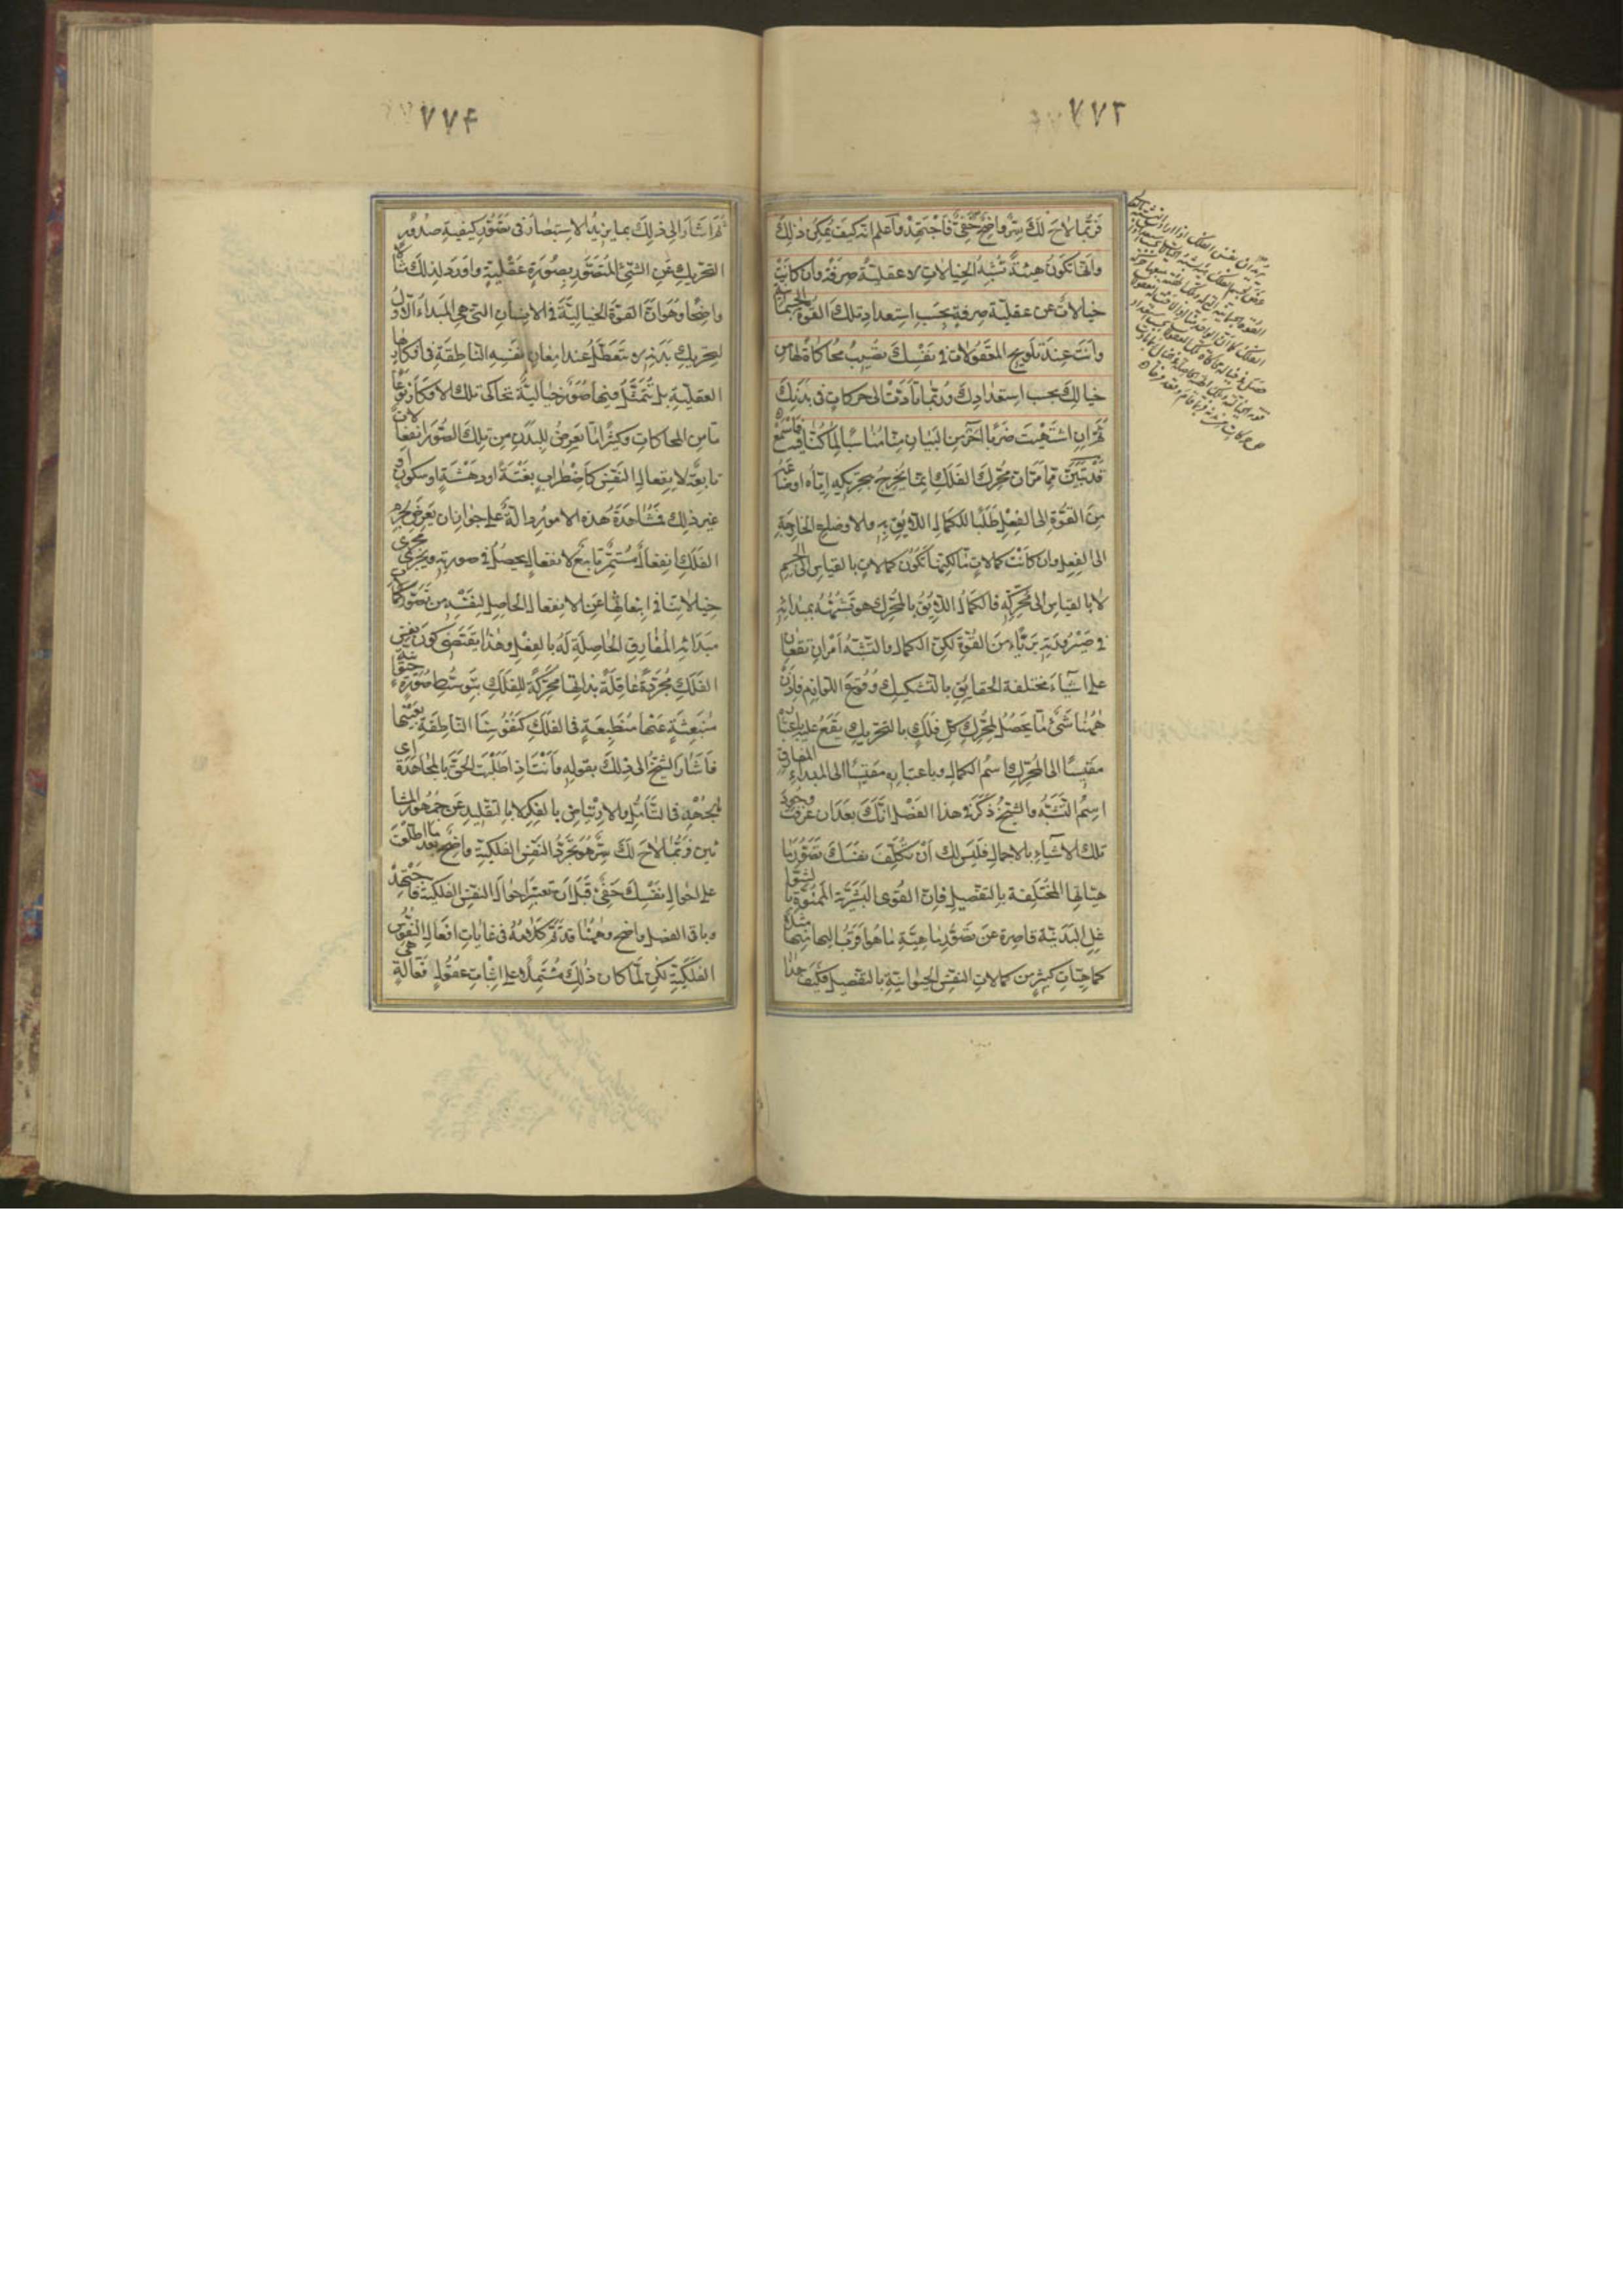 ٧٧٣
فربما لاح لك سر واضح خفي فاجتهد واعلم انه كيف يمكن ذلك
وانها تكون هيئة تشبه الخيالات لا عقلية صرفة وان كانت
خيالات عن عقلية صرفة بحسب استعداد تلك القوة الجسمانية
وانت عند تلويح المعقولات في نفسك تصيب محاكاة لها من
خيالك بحسب استعدادك وربما تأدت الى حركات في بدنك
ثم ان اشتهيت ضربا آخر من البيان مناسبا لما كنا فيه فاسمع
قد تبين مما مر ان محرك الفلك انما يخرج بتحريكه اياه اوضاعه
من القوة الى الفعل طلبا للكمال اللائق به والاوضاع الخارجة
الى الفعل وان كانت كمالات ما لكنها تكون كمالات بالقياس الى الجسم
لا بالقياس الى محركه فالكمال اللائق بالمحرك هو تشبهه بمبدائه
في صيرورته بريّا من القوة لكن الكمال والتشبه امران تقعان
على اشياء مختلفة الحقايق بالتشكيك وقوع اللوازم فاذن
ههنا شئ ما يحصل لمحرك كل فلك بالتحريك يقع عليه باعتباره
مقيسا الى المحرك اسم الكمال وباعتباره مقيسا الى المبداء المفارق
اسم التشبه والشيخ ذكر في هذا الفصل انك بعد ان عرفت وجود
تلك الاشياء بالاجمال فليس لك ان تكلف نفسك تصور
ماهياتها المختلفة بالتفصيل فان القوى البشرية الممنوة بالشواغل
البدنية قاصرة عن تصور ماهية ما هو اقرب اليها منها
كماهيات كثير من كمالات النفس الحيوانية بالتفصيل فكيف هذا
٧٧۴
ثم اشار الى ذلك بما يزيد الاستبصار في تصور كيفية صدور
التحريك عن الشئ المتصور بصورة عقلية واورد لذلك مثالا
واضحا وهو ان القوة الخيالية في الانسان التي هي المبداء الاول
لتحريك بدنه لا تتعطل عند امعان نفسه الناطقة في افكارها
العقلية بل تتمثل فيها صور خيالية تحاكى تلك الافكار نوعا
ما من المحاكات وكثيرا ما يعرض للبدن من تلك الصور انفعالات
تابعة لانفعال النفس كاضطراب بغتة او دهشة او سكون او
غير ذلك فمشاهدة هذه الامور دالة على جواز ان يعرض لجرم
الفلك انفعال مستمر تابع لانفعال يحصل في صورته ويجرى مجرى
خيالاتنا في انبعاثها عن الانفعال الحاصل لنفسه من تصور كمال
مبدائه المفارق الحاصلة له بالفعل وهذا يقتضى كون نفس
الفلك مجردة عاقلة بذاتها محركة للفلك بتوسط صورة
منبعثة عنها منطبعة في الفلك كنفوسنا الناطقة بعينها
فاشار الشيخ الى ذلك بقوله وانت اذا طلبت الحق بالمجاهدة اى
بالجهد في التأمل والارتياض بالفكر لا بالتقليد عن جمهور المشائين
فربما لاح لك سر هو تجرد النفس الفلكية واضح بعد ما اطلعت
على احوال نفسك خفي قبل ان تعتبر احوال النفس الفلكية فاجتهد
وباقى الفصل واضح وههنا قد تم كلامه في غايات افعال النفوس
الفلكية لكن لما كان ذلك مشتملا على اثبات عقول هي فعالة